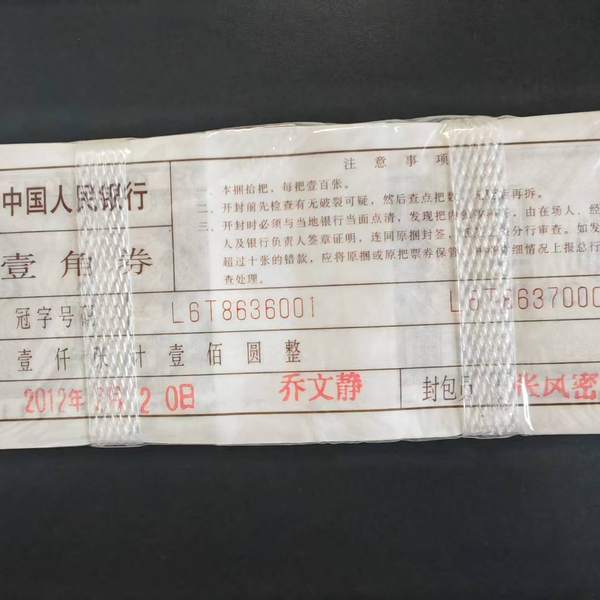 注意事项
一、本捆拾把，每把壹百张。
二、开封前先检查有无破裂可疑，然后查点把数 再拆。
三、开封时必须与当地银行当面点清，发现把内 ，由在场人、经
人及银行负责人签章证明，连同原捆封签、 分行审查。如发
超过十张的错款，应将原捆或原把票券保管， 细情况上报总行
查处理。
中国人民银行
壹角券
冠字号码 L6T8636001 L6T8637000
壹仟张计壹佰圆整
2012年 月20日 乔文静 封包员 张风密